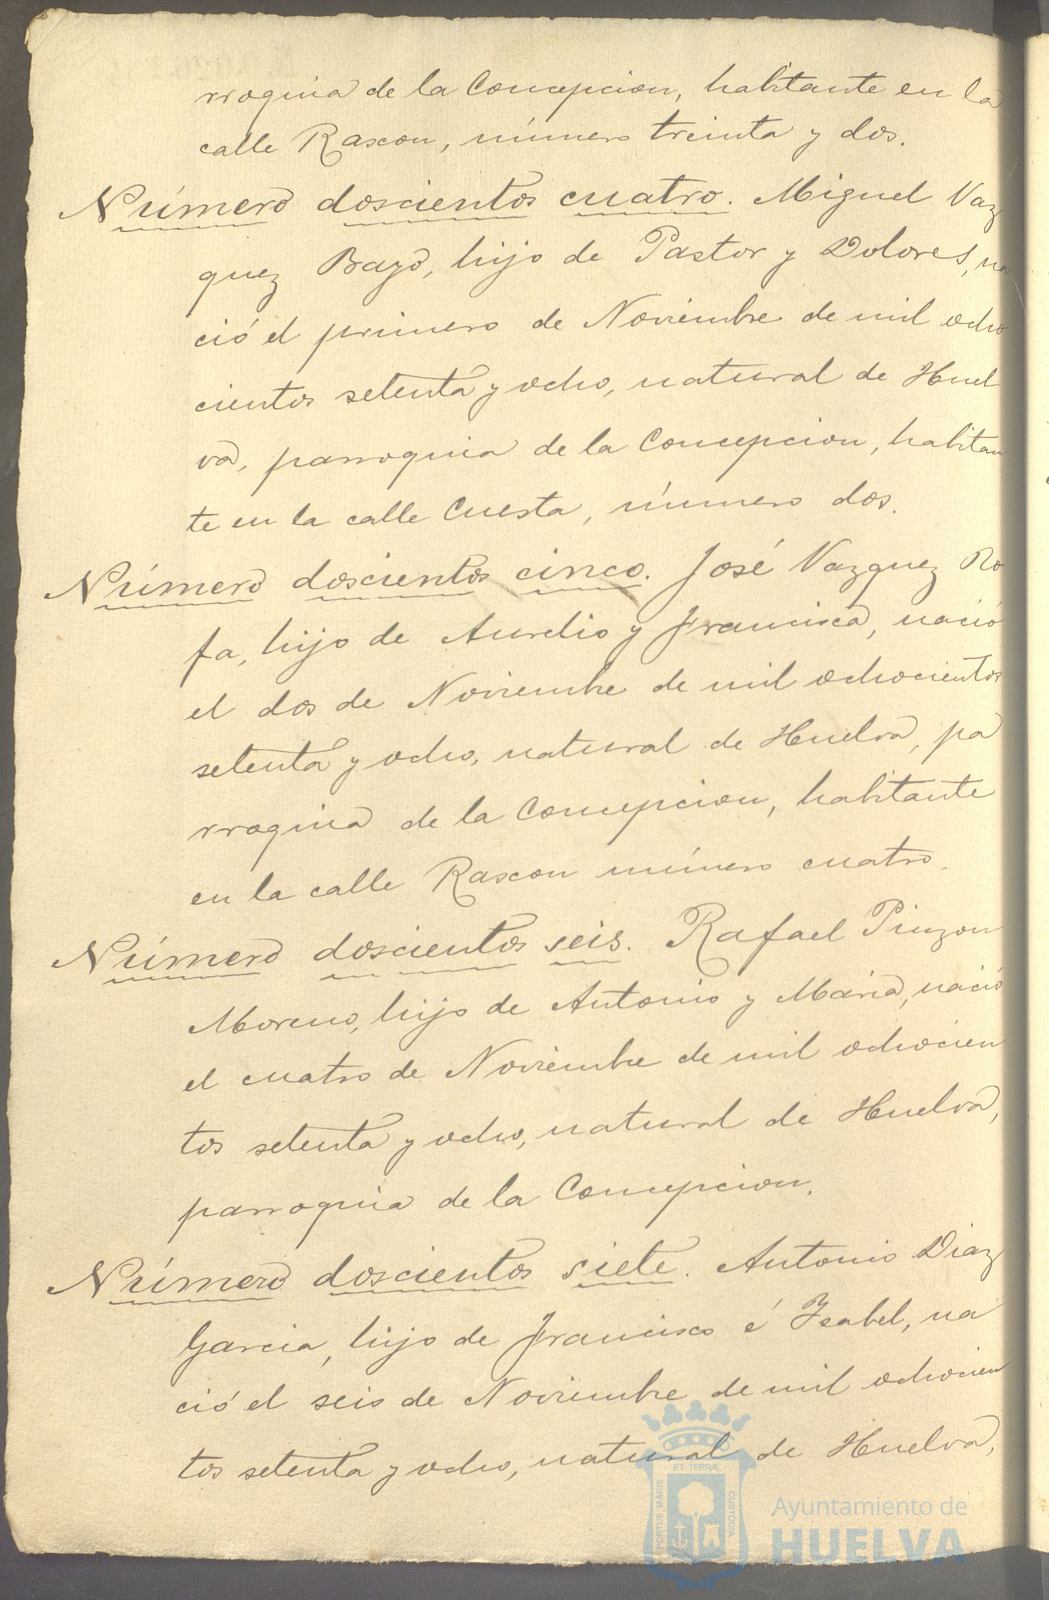 rroquia de la Concepcion, habitante en la
calle Rascon, número treinta y dos.
Número doscientos cuatro. Miguel Vaz
quez Bayo, hijo de Pastor y Dolores, na
ció el primero de Noviembre de mil ocho
cientos setenta y ocho, natural de Huel
va, parroquia de la Concepcion, habitan
te en la calle Cuesta, número dos.
Número doscientos cinco. José Vazquez Ro
fa, hijo de Aurelio y Francisca, nació
el dos de Noviembre de mil ochocientos
setenta y ocho, natural de Huelva, pa
rroquia de la Concepcion, habitante
en la calle Rascon número cuatro.
Número doscientos seis. Rafael Pinzon
Moreno, hijo de Antonio y Maria, nació
el cuatro de Noviembre de mil ochocien
tos setenta y ocho, natural de Huelva,
parroquia de la Concepcion.
Número doscientos siete. Antonio Diaz
Garcia, hijo de Francisco é Isabel, na
ció el seis de Noviembre de mil ochocien
tos setenta y ocho, natural de Huelva,
PORTUS MARIS ET TERRÆ CUSTODIA
Ayuntamiento de
HUELVA